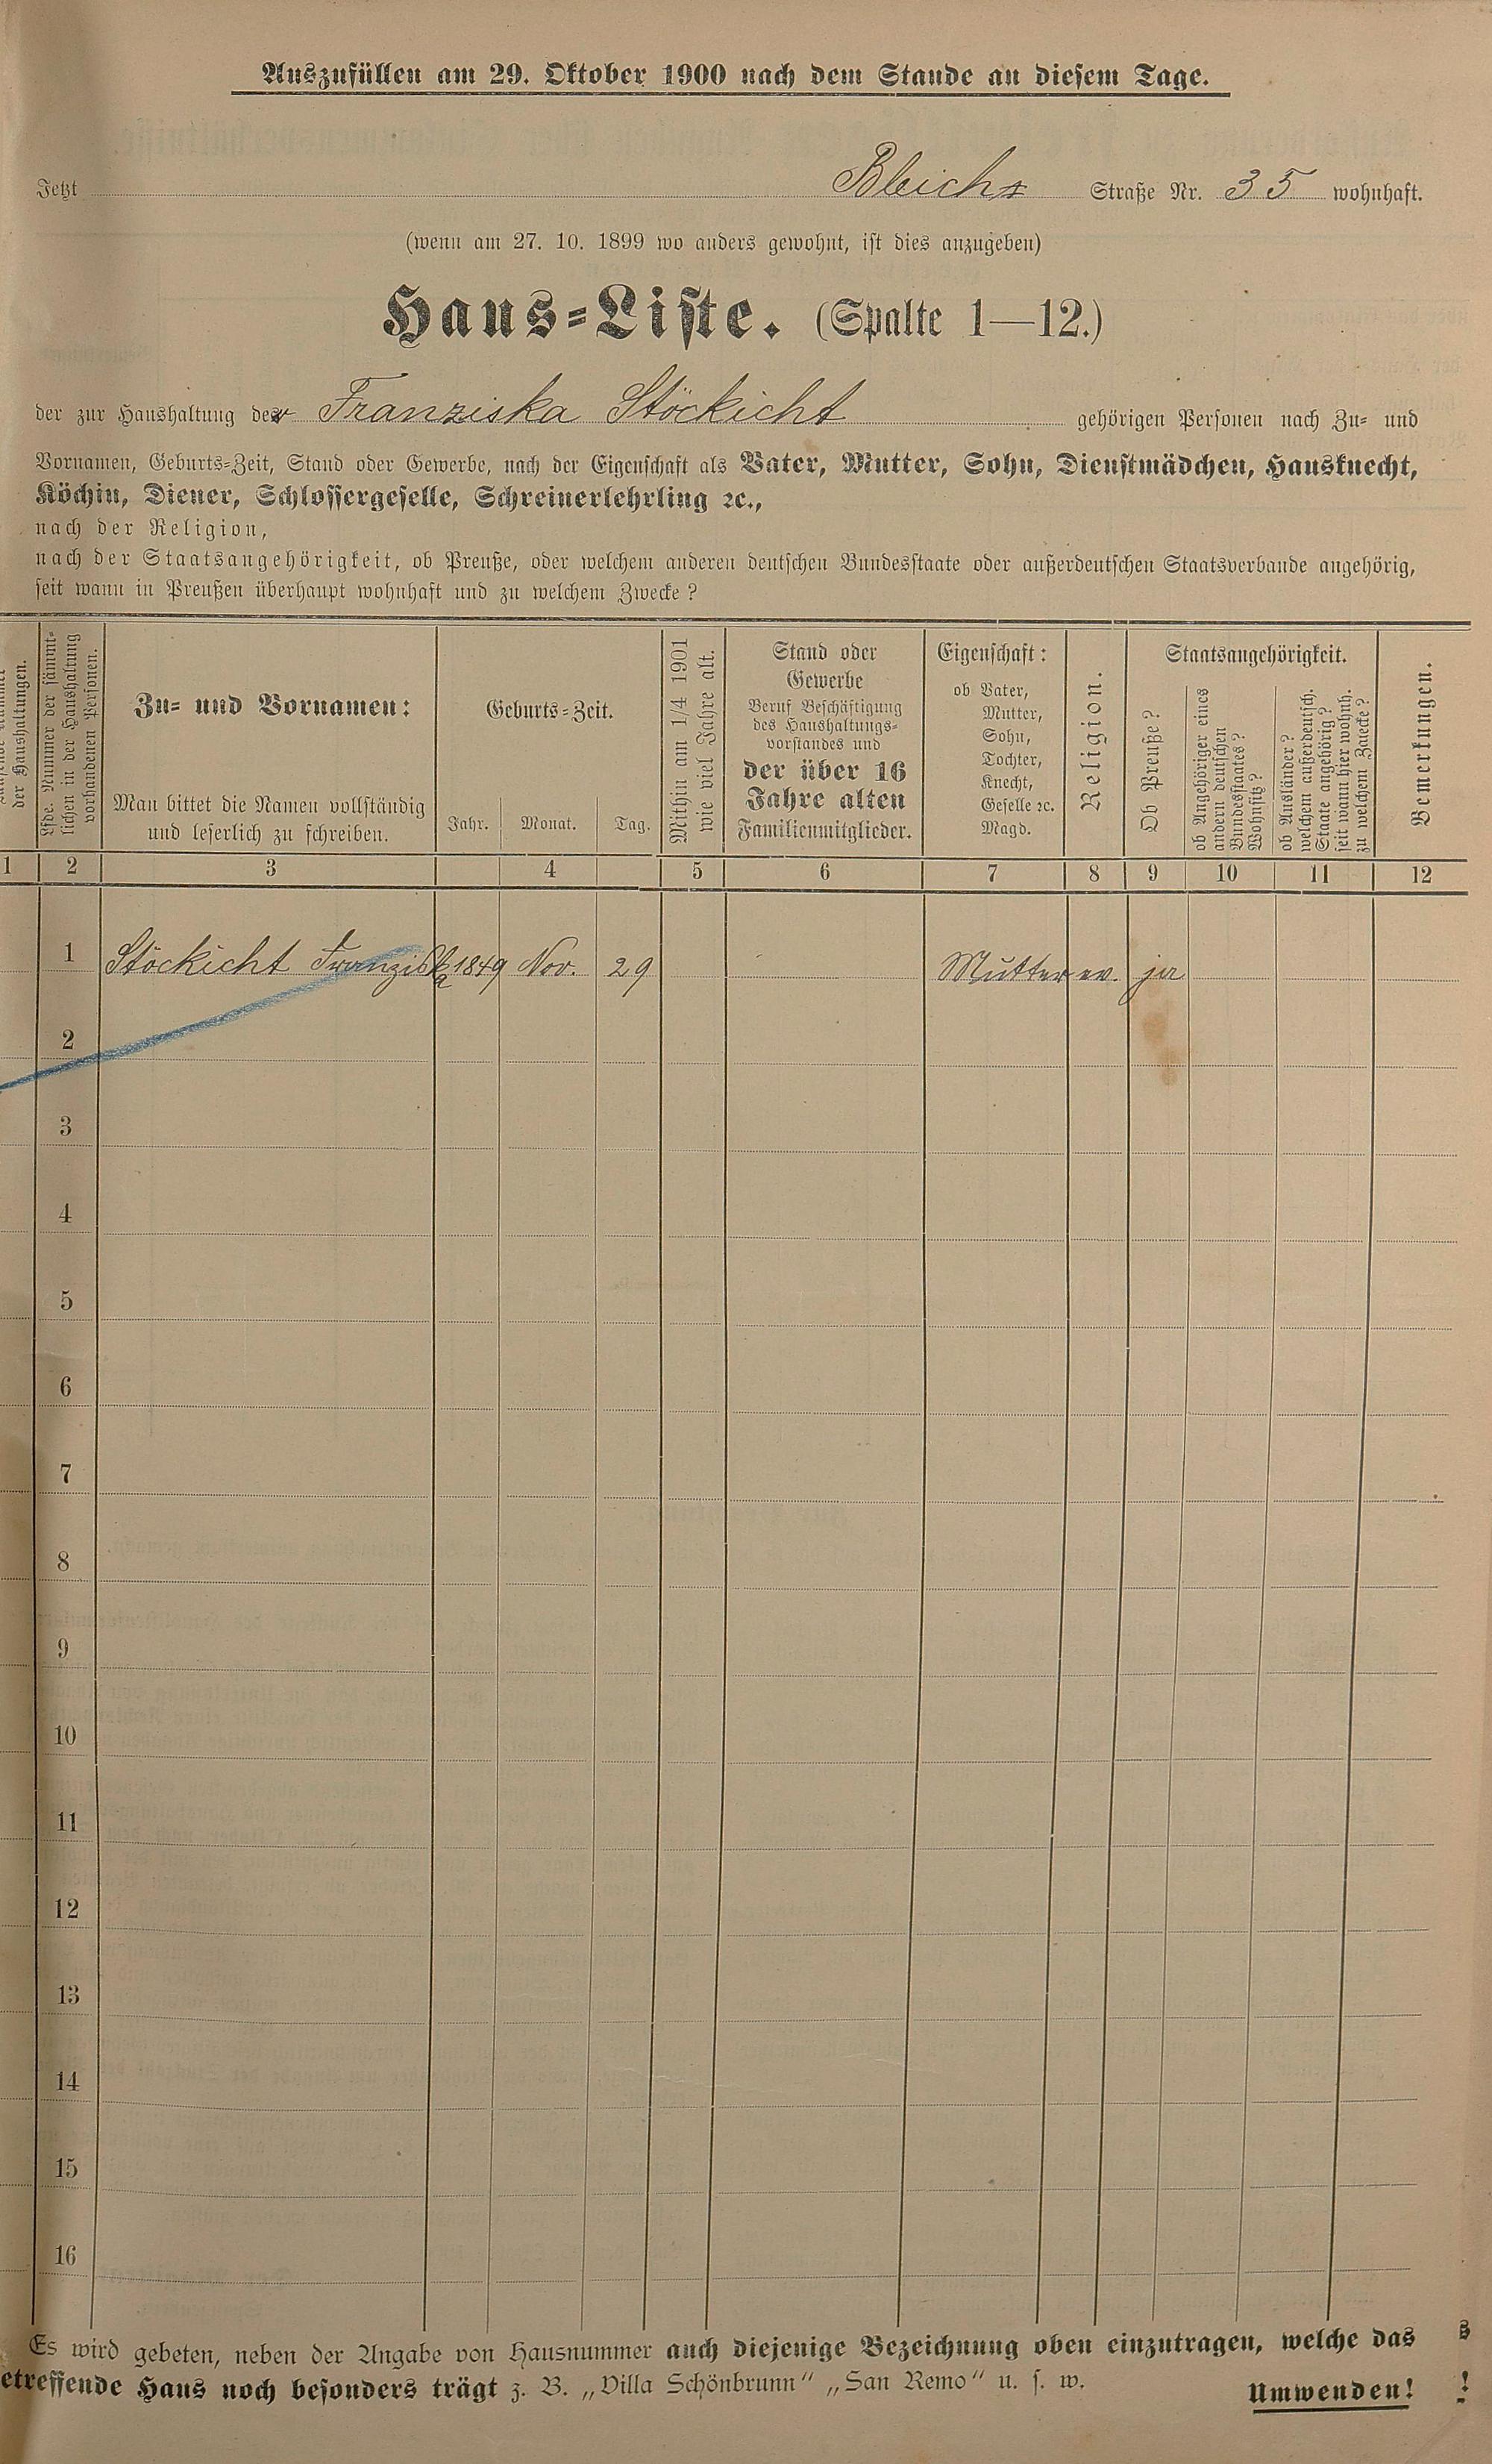 Auszufüllen am 29. Oktober 1900 nach dem Stande an diesem Tage.
Jetzt Bleichs Straße Nr. 35 wohnhaft.
(wenn am 27. 10. 1899 wo anders gewohnt, ist dies anzugeben)
Haus-Liste. (Spalte 1—12.)
der zur Haushaltung der Franziska Stöckicht gehörigen Personen nach Zu- und
Vornamen, Geburts-Zeit, Stand oder Gewerbe, nach der Eigenschaft als Vater, Mutter, Sohn, Dienstmädchen, Hausknecht,
Köchin, Diener, Schlossergeselle, Schreinerlehrling ꝛc.,
nach der Religion,
nach der Staatsangehörigkeit, ob Preuße, oder welchem anderen deutschen Bundesstaate oder außerdeutschen Staatsverbande angehörig,
seit wann in Preußen überhaupt wohnhaft und zu welchem Zwecke?
der Haushaltungen.
Lfde. Nummer der sämmt-
lichen in der Haushaltung
vorhandenen Personen.
Zu- und Vornamen:
Man bittet die Namen vollständig
und leserlich zu schreiben.
Geburts-Zeit.
Jahr. Monat. Tag.
Mithin am 1/4 1901
wie viel Jahre alt.
Stand oder
Gewerbe
Beruf Beschäftigung
des Haushaltungs-
vorstandes und
der über 16
Jahre alten
Familienmitglieder.
Eigenschaft:
ob Vater,
Mutter,
Sohn,
Tochter,
Knecht,
Geselle ꝛc.
Magd.
Religion.
Staatsangehörigkeit.
Ob Preuße?
ob Angehöriger eines
andern deutschen
Bundesstaates?
Wohnsitz?
ob Ausländer?
welchem außerdeutsch.
Staate angehörig?
seit wann hier wohnh.
zu welchem Zwecke?
Bemerkungen.
1 2 3 4 5 6 7 8 9 10 11 12
1 Stöckicht Franziska 1849 Nov. 29 Mutter ev. ja
2
3
4
5
6
7
8
9
10
11
12
13
14
15
16
Es wird gebeten, neben der Angabe von Hausnummer auch diejenige Bezeichnung oben einzutragen, welche das
etreffende Haus noch besonders trägt z. B. „Villa Schönbrunn“ „San Remo“ u. s. w.
Umwenden!